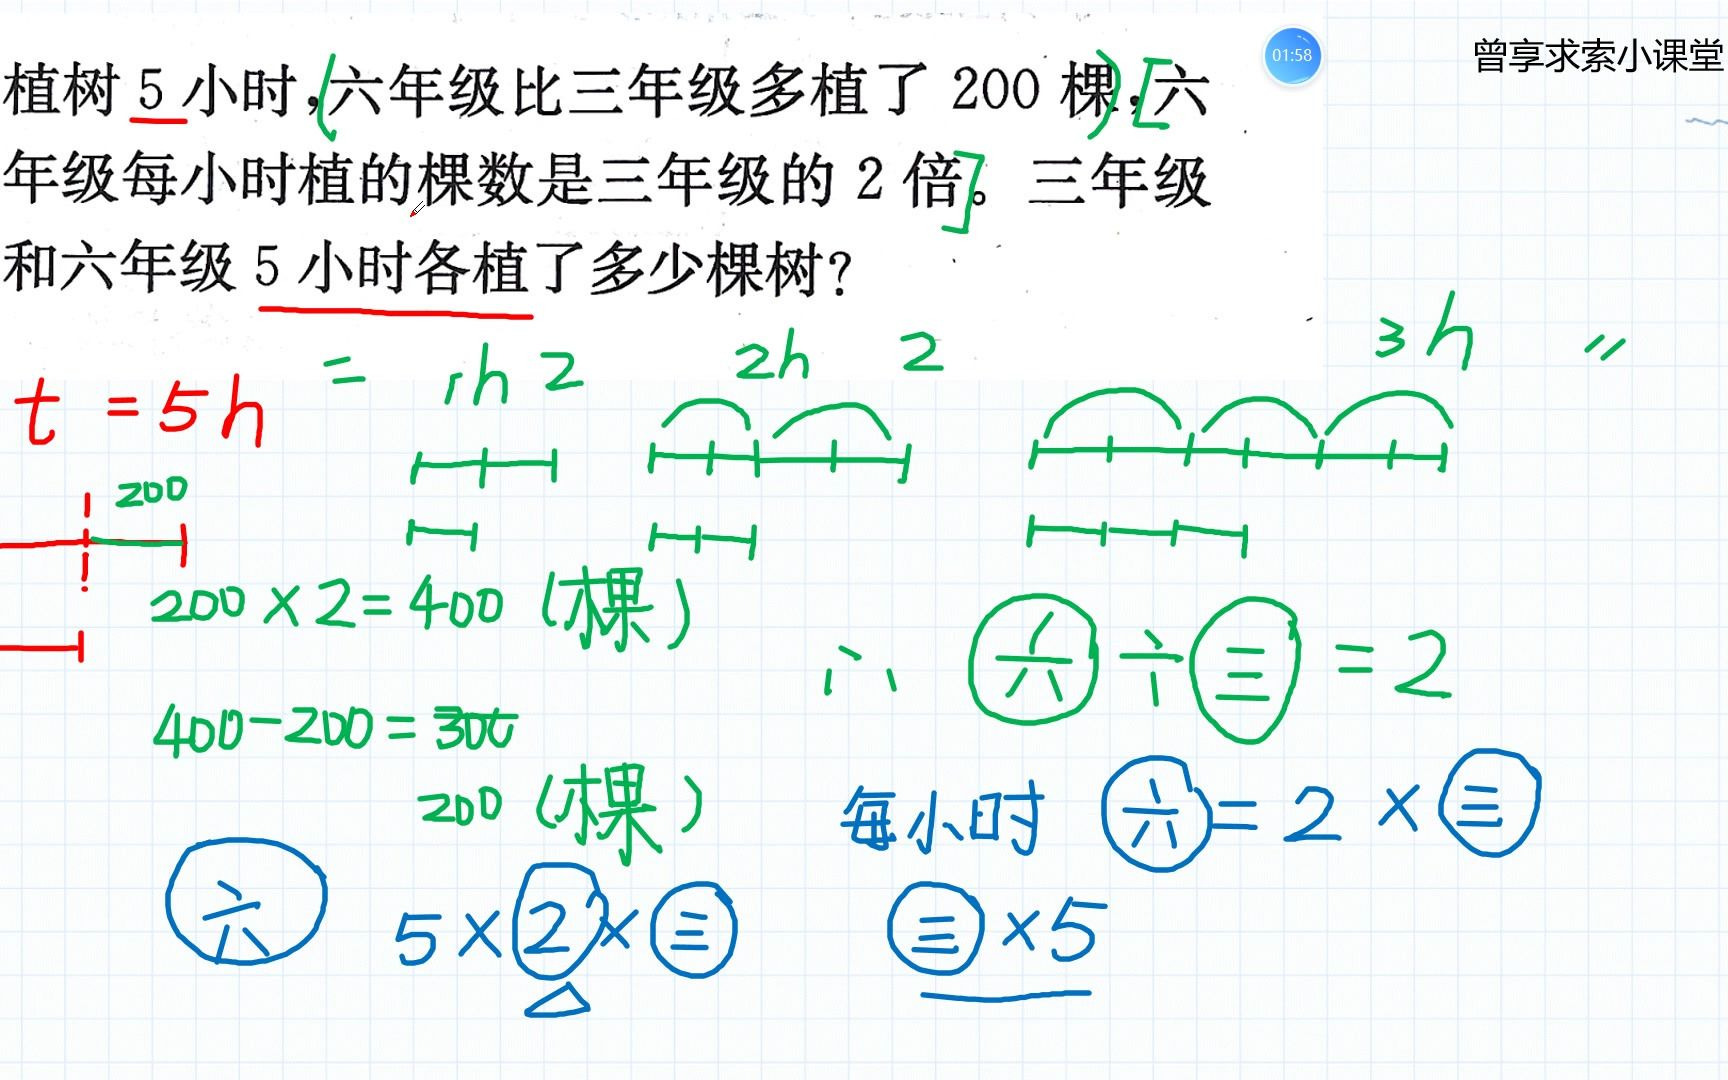 01:58
曾享求索小课堂
植树 5 小时,(六年级比三年级多植了 200 棵),[六
年级每小时植的棵数是三年级的 2 倍]。三年级
和六年级 5 小时各植了多少棵树?
t = 5h
= 1h 2 2h 2 3h
200
200 × 2 = 400 (棵)
∴ 六 ÷ 三 = 2
400 - 200 = 300
200 (棵)
每小时 六 = 2 × 三
六 5 × 2 × 三 三 × 5